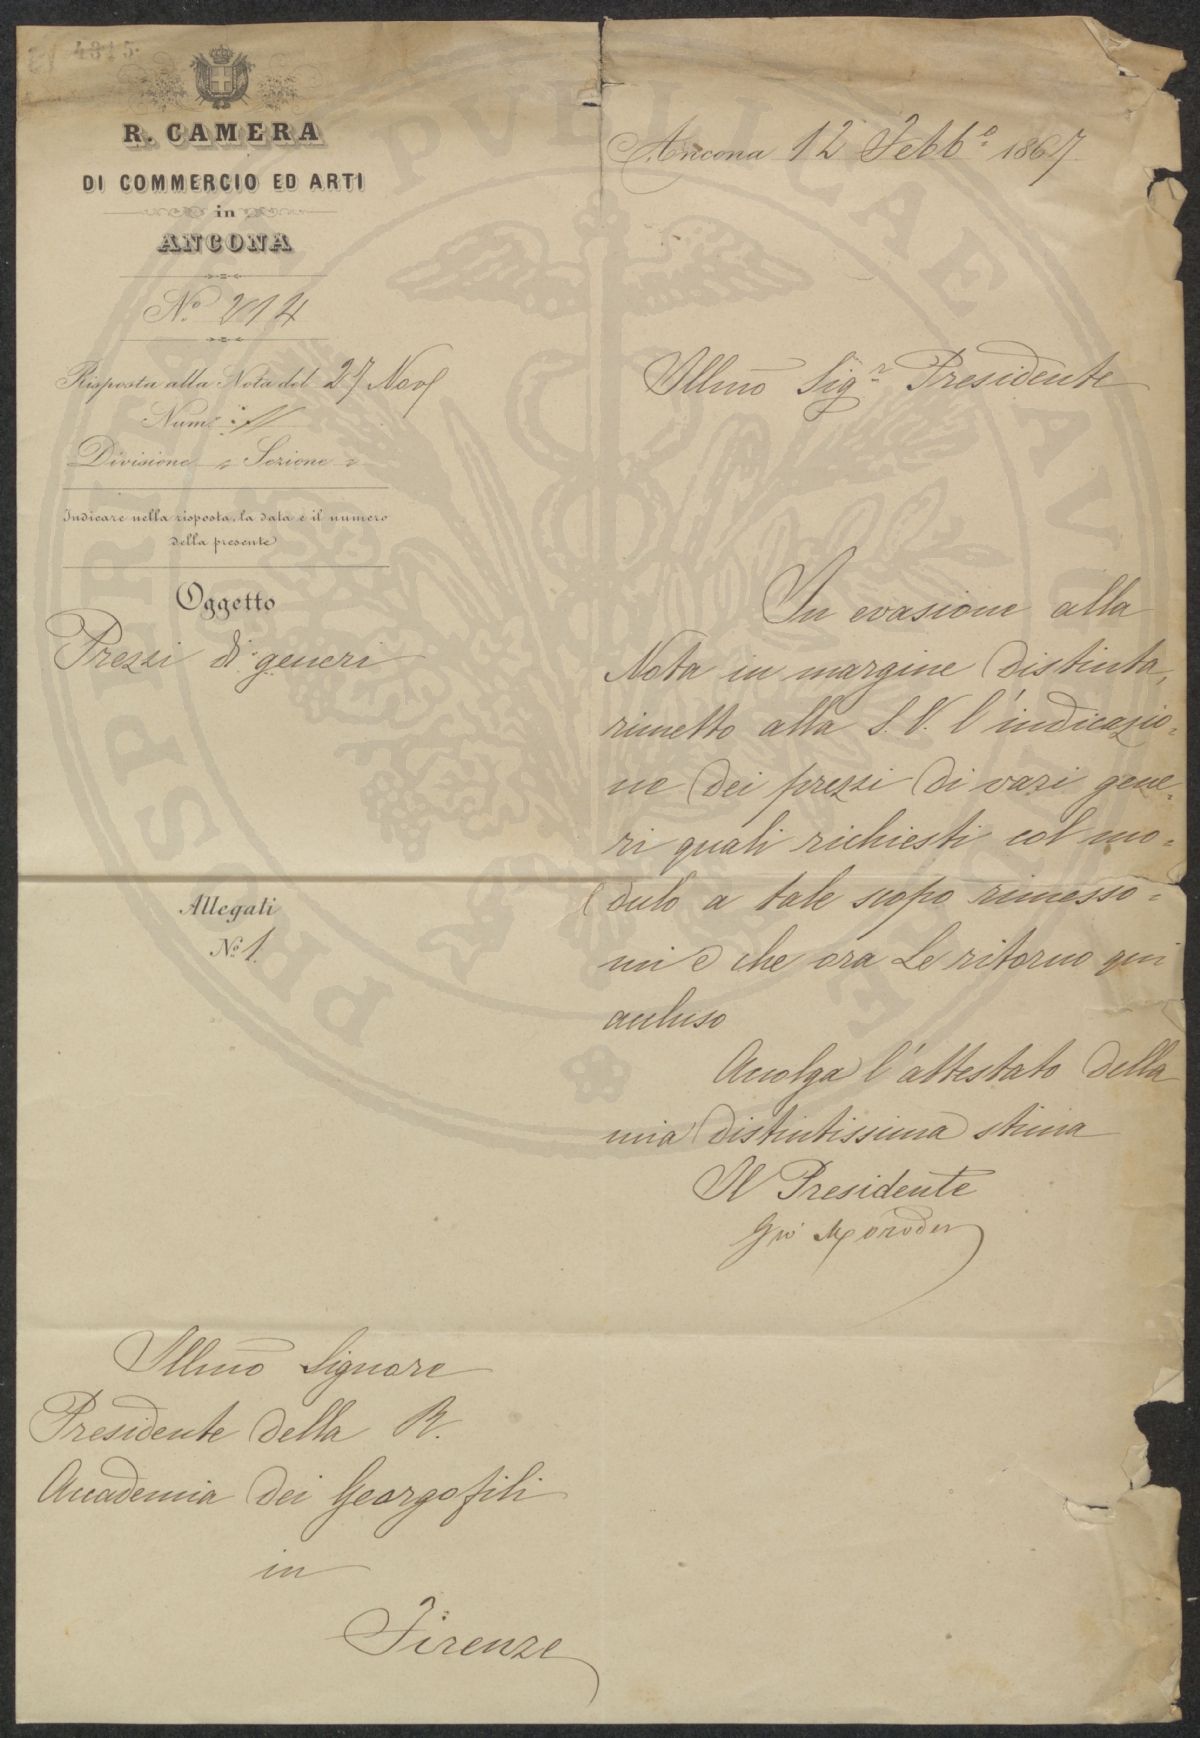 4315
R. CAMERA
DI COMMERCIO ED ARTI
in
ANCONA
N.º 214
Risposta alla Nota del 27 Nov
Num.
Divisione Sezione
Indicare nella risposta, la data e il numero
della presente
Oggetto
Prezzi di generi
Allegati
Nº 1.
Ancona 12 Febb.º 1867
Illmo Sig.r Presidente
In evasione alla
Nota in margine distinta,
rimetto alla S. V. l'indicazio=
ne dei prezzi di vari gene=
ri quali richiesti col mo=
dulo a tale scopo rimesso=
mi e che ora Le ritorno qui
accluso
Accolga l'attestato della
mia distintissima stima
Il Presidente
Gio Moroder
Illmo Signore
Presidente della R.
Accademia dei Georgofili
in
Firenze
PROSPERITATI PVBLICAE AVGENDAE